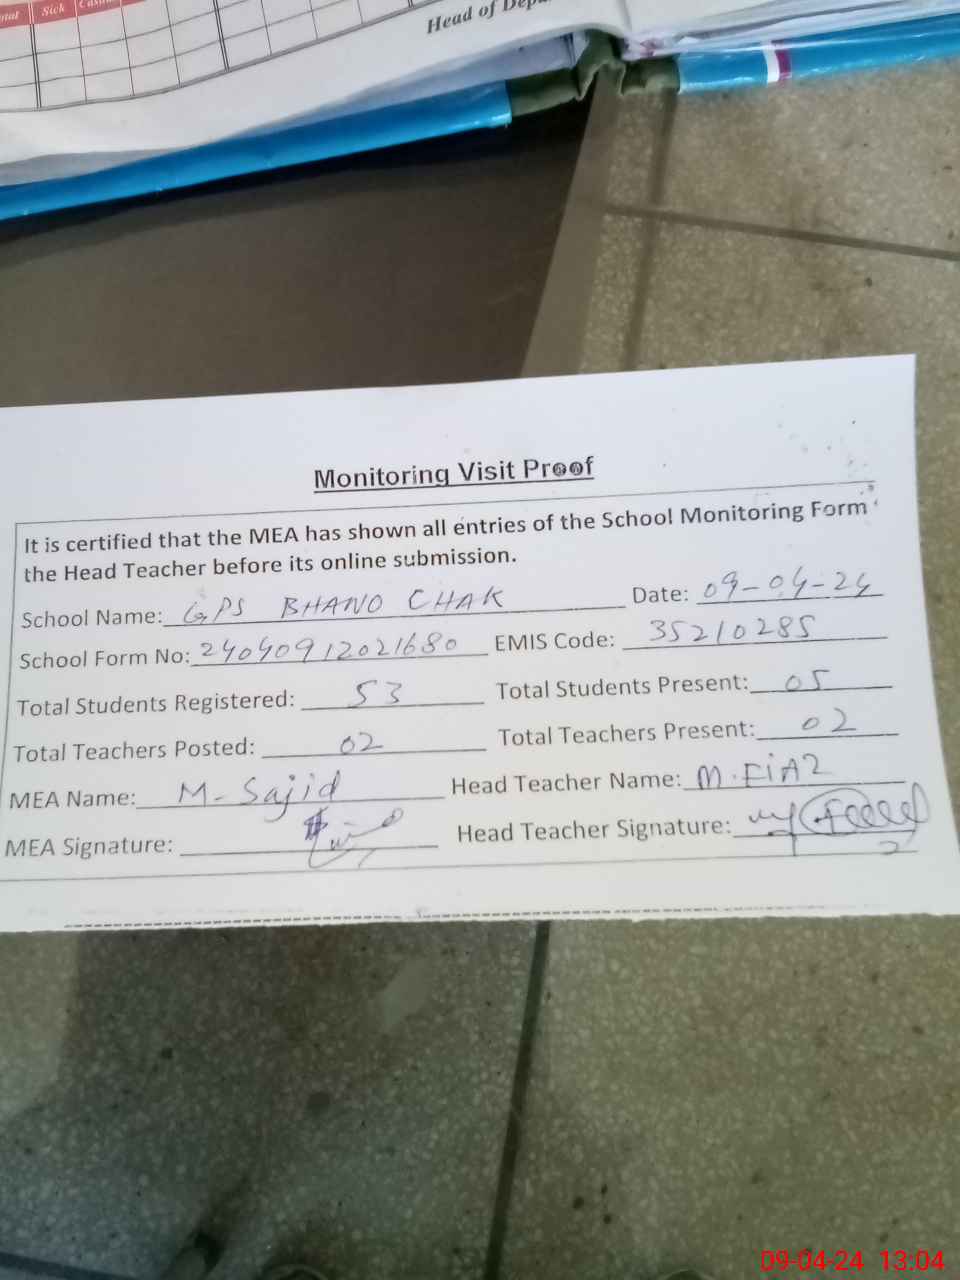 Sick
Head of
Monitoring Visit Proof
It is certified that the MEA has shown all entries of the School Monitoring Form
the Head Teacher before its online submission.
School Name: GPS BHANO CHAK Date: 09-04-24
School Form No: 24040912021680 EMIS Code: 35210285
Total Students Registered: 53 Total Students Present: 05
Total Teachers Posted: 02 Total Teachers Present: 02
MEA Name: M-Sajid Head Teacher Name: M.FiAZ
MEA Signature: Head Teacher Signature:
09-04-24 13:04